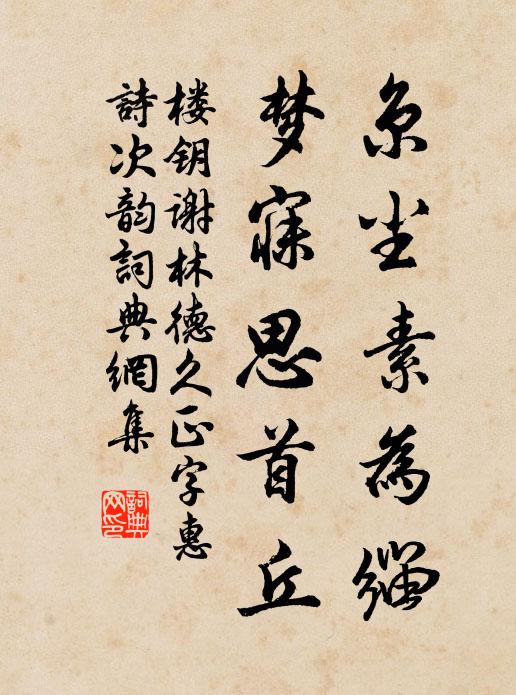 京尘素為缁
梦寐思首丘
楼钥谢林德久正字惠
詩次韵詞典網集
詞典网印